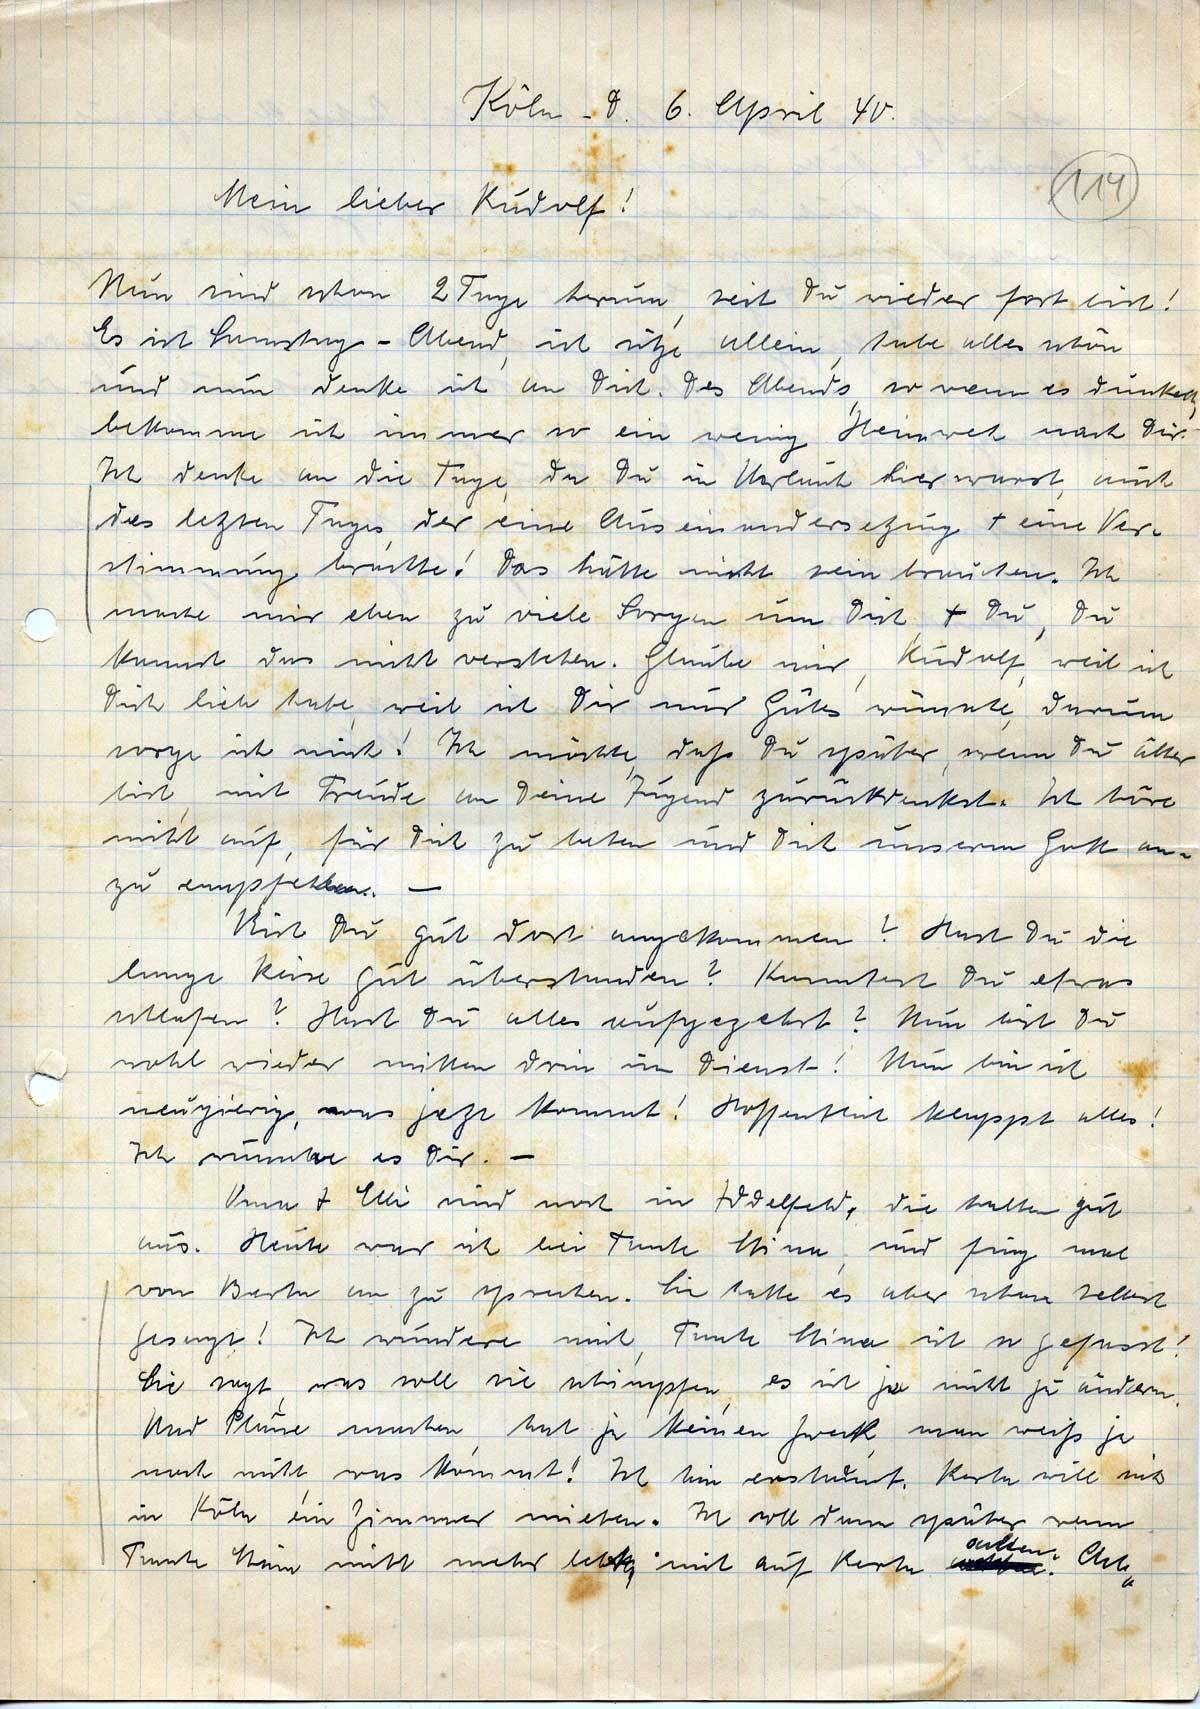 Köln - D. 6. April 40.
114
Mein lieber Rudolf!
Nun sind schon 2 Tage herum, seit Du wieder fort bist!
Es ist Samstag - Abend, ich sitze allein, habe alles schön
und nun denke ich an Dich. Des Abends, so wenn es dunkelt,
bekomme ich immer so ein wenig Heimweh nach Dir.
Ich denke an die Tage, da Du in Urlaub hier warst, auch
des letzten Tages, der eine Auseinandersetzung + eine Ver-
stimmung brachte! Das hätte nicht sein brauchen. Ich
mache mir eben zu viele Sorgen um Dich + Du, Du
kannst das nicht verstehen. Glaube mir, Rudolf, weil ich
Dich lieb habe, weil ich Dir nur Gutes wünsche, darum
sorge ich mich! Ich möchte, daß Du später, wenn Du älter
bist, mit Freude an Deine Jugend zurückdenkst. Ich höre
nicht auf, für Dich zu beten und Dich unserm Gott an-
zu empfehlen. —
Bist Du gut dort angekommen? Hast Du die
lange Reise gut überstanden? Konntest Du etwas
schlafen? Hast Du alles aufgezehrt? Nun bist Du
wohl wieder mitten drin im Dienst! Nun bin ich
neugierig, was jetzt kommt! Hoffentlich klappt alles!
Ich wünsche es Dir. —
Oma + Elli sind noch in Iddelfeld, die halten gut
aus. Heute war ich bei Tante Stina, und fing mal
von Berta an zu sprechen. Sie hatte es aber schon selbst
gesagt! Ich wundere mich, Tante Stina ist so gefasst!
Sie sagt, was soll sie schimpfen, es ist ja nicht zu ändern.
Und Pläne machen, hat ja keinen Zweck, man weiß ja
noch nicht was kommt! Ich bin erstaunt. Berta will sich
in Köln ein Zimmer mieten. Ich soll dann später wenn
Tante Stina nicht mehr lebt, mit auf Berta achten. Ach,